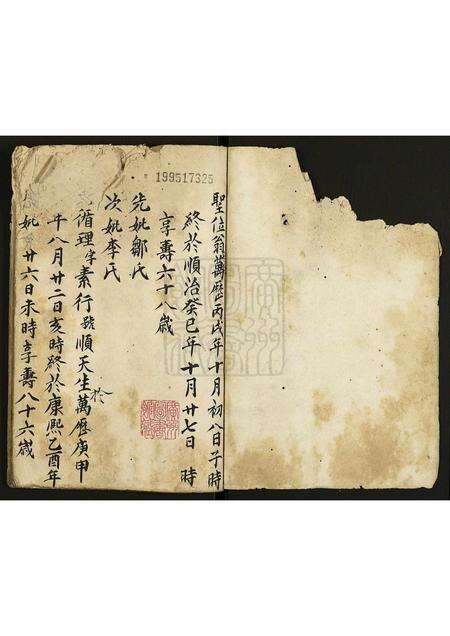 199517325
聖位翁萬歷丙戌年十月初八日子時
終於順治癸巳年十月廿七日 時
享壽六十八歲
先妣鄒氏
次妣李氏
循理字素行號順天生於萬歷庚甲
年八月廿二日亥時終於康熙乙酉年
廿六日未時享壽八十六歲